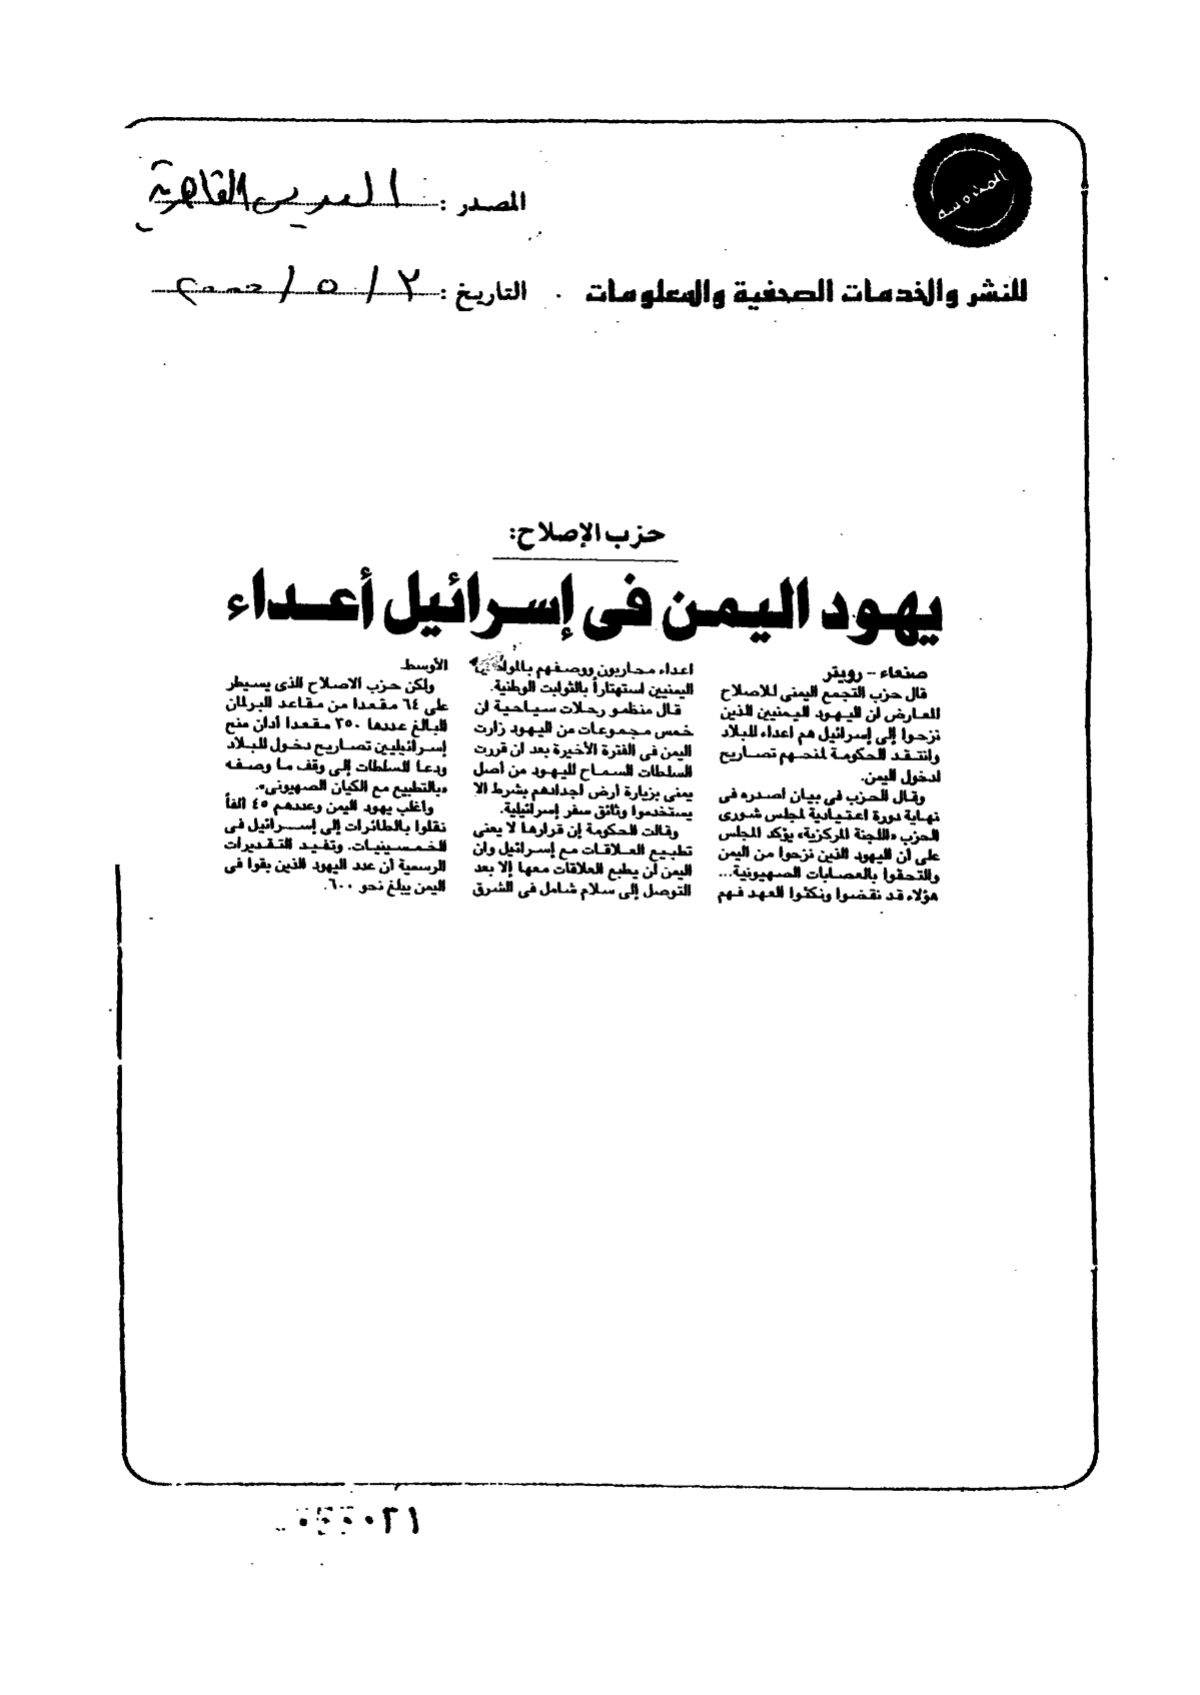 المصدر : العربي القاهرية
للنشر والخدمات الصحفية والمعلومات
التاريخ : ٢ / ٥ / ٢٠٠٠
حزب الإصلاح:
يهود اليمن فى إسرائيل أعداء
صنعاء -- رويتر
قال حزب التجمع اليمنى للاصلاح
المعارض ان اليهود اليمنيين الذين
نزحوا إلى إسرائيل هم اعداء للبلاد
وانتقد الحكومة لمنحهم تصاريح
لدخول اليمن.
وقال الحزب فى بيان اصدره فى
نهاية دورة اعتيادية لمجلس شورى
الحزب «اللجنة المركزية» يؤكد المجلس
على أن اليهود الذين نزحوا من اليمن
والتحقوا بالعصابات الصهيونية...
هؤلاء قد نقضوا ونكثوا العهد فهم
اعداء محاربون ووصفهم
اليمنيين استهتاراً بالثوابت الوطنية.
قال منظمو رحلات سياحية ان
خمس مجموعات من اليهود زارت
اليمن فى الفترة الأخيرة بعد ان قررت
السلطات السماح لليهود من أصل
يمنى بزيارة ارض اجدادهم بشرط الا
يستخدموا وثائق سفر إسرائيلية.
وقالت الحكومة إن قرارها لا يعنى
تطبيع العلاقات مع إسرائيل وان
اليمن لن يطبع العلاقات معها إلا بعد
التوصل إلى سلام شامل فى الشرق
الأوسط.
ولكن حزب الاصلاح الذى يسيطر
على ٦٤ مقعدا من مقاعد البرلمان
البالغ عددها ٣٥٠ مقعدا أدان منح
إسرائيليين تصاريح دخول للبلاد
ودعا السلطات إلى وقف ما وصفه
«بالتطبيع مع الكيان الصهيونى».
واغلب يهود اليمن وعددهم ٤٥ الفاً
نقلوا بالطائرات إلى إسرائيل فى
الخمسينيات. وتفيد التقديرات
الرسمية أن عدد اليهود الذين بقوا فى
اليمن يبلغ نحو ٦٠٠.